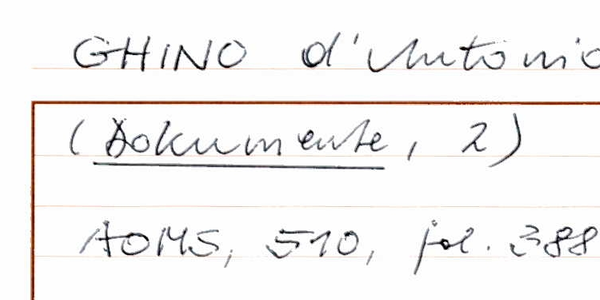 GHINO d'Antonio
(Dokumente, 2)
AOMS, 510, fol. 388